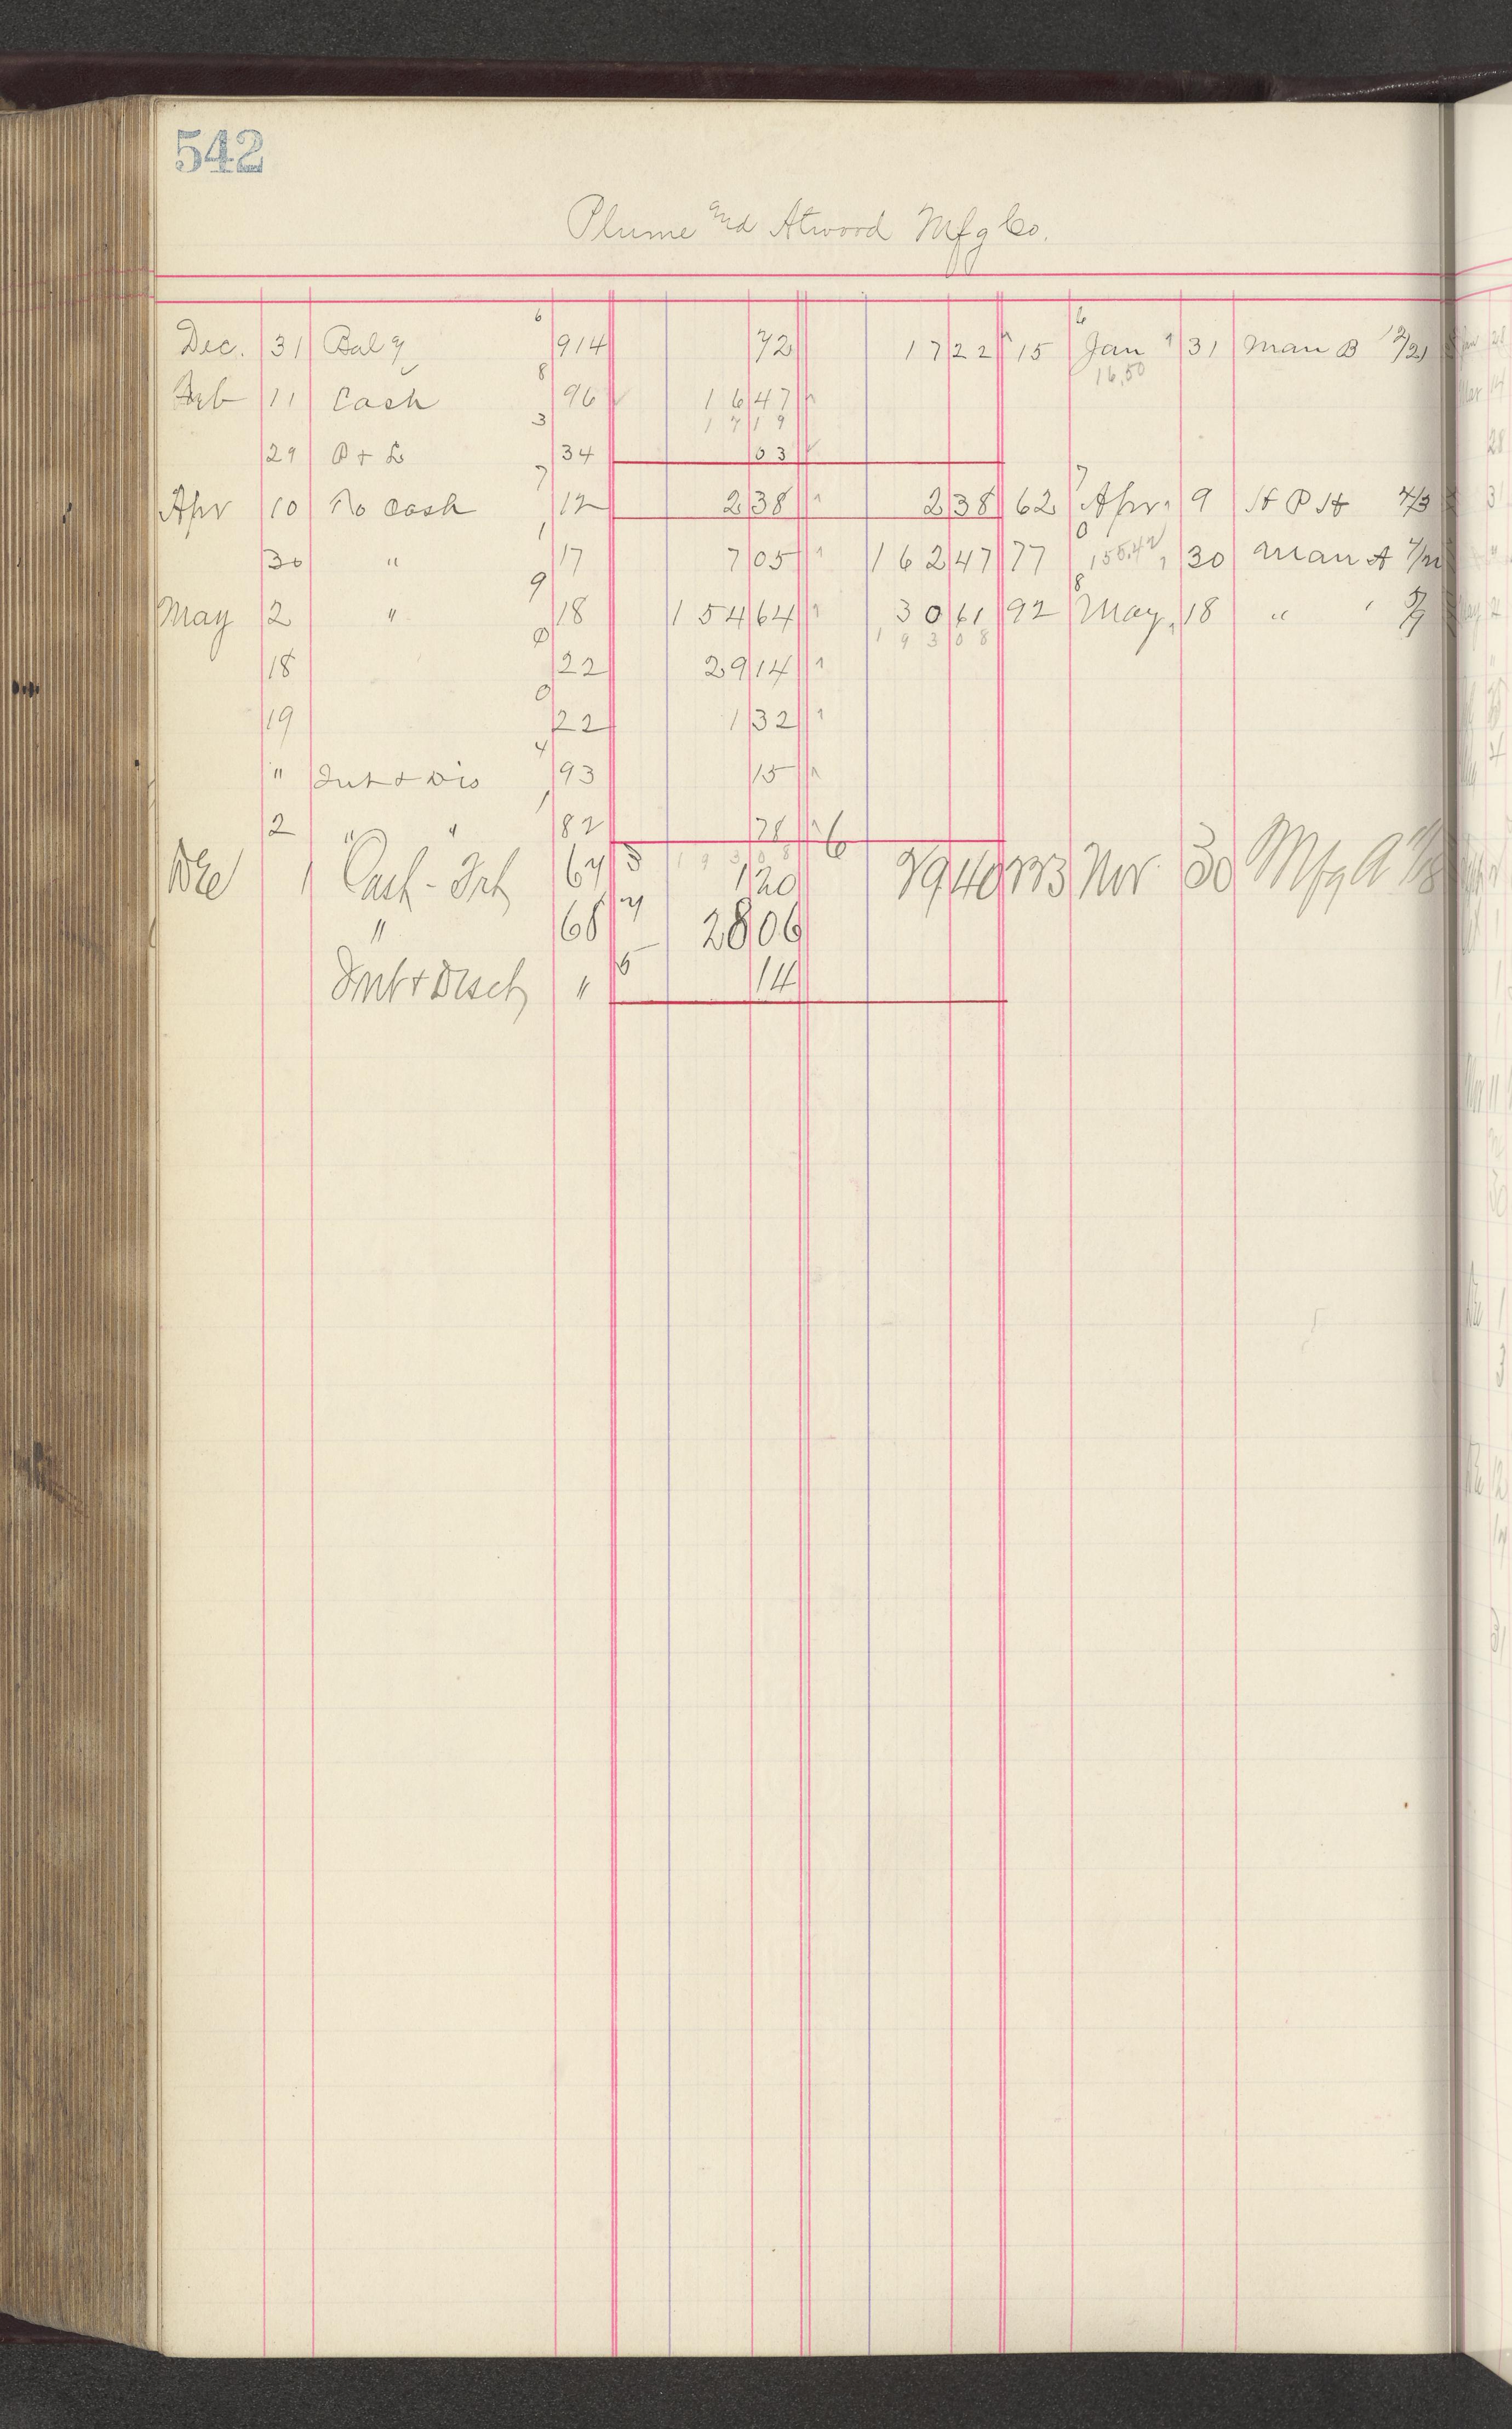 542
Plume and Atwood Mfg Co.
6 6
Dec. 31 Bal 914 72 1722 15 Jan 31 Man B 12/21
8 16,50
Feb 11 Cash 96 1647
3 1719
29 P + L 34 03
7 7
Apr 10 To Cash 12 238 238 62 Apr. 9 H P H 4/3
1 0
30 " 17 705 16247 77 155.42 30 Man A 4/21
9 8
May 2 " 18 15464 3061 92 May 18 " " 5/9
0 19308
18 22 2914
0
19 22 132
4
" Int + Dis 93 15
1
2 " " 82 78 6
19308
Dec 1 Cash - Frt 67 3 120 2940 Nov 30 Mfg A 11/8
" 68 4 2806
Int + Disct " 5 14